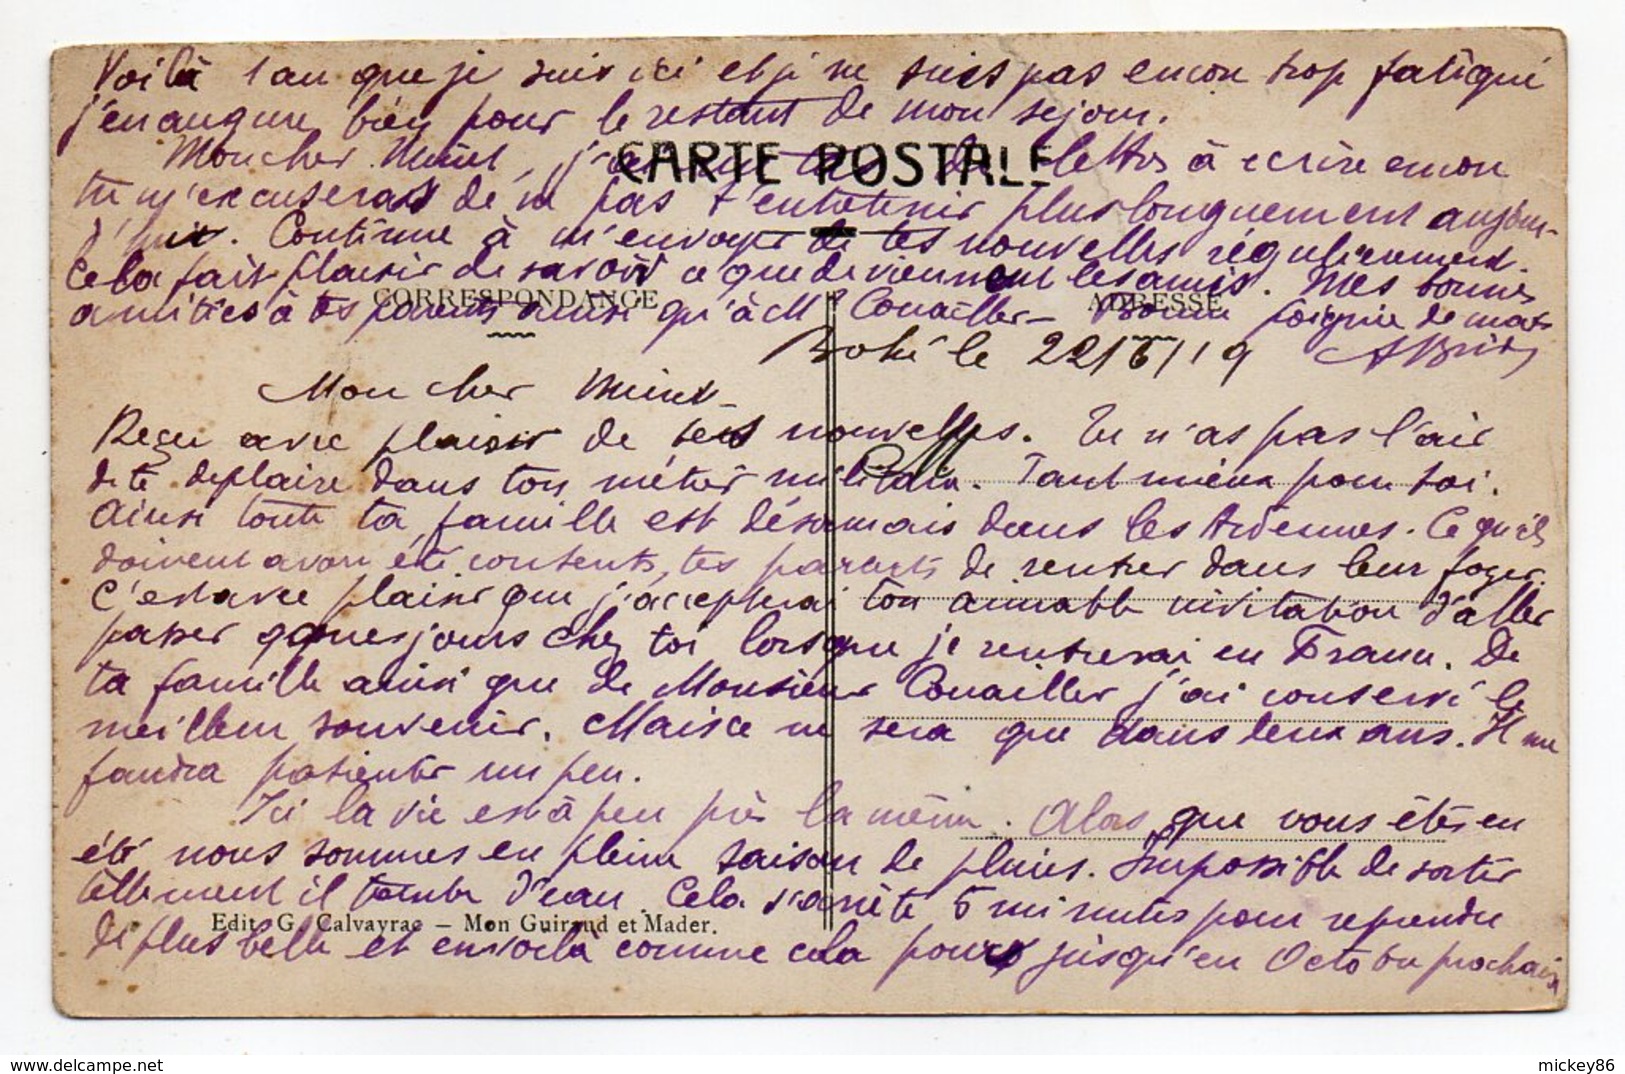 Voilà 1 an que je suis ici et je ne suis pas encore trop fatigué
j'en augure bien pour le restant de mon séjour.
Mon cher j'ai des lettres à écrire encore
CARTE POSTALE
tu m'excuseras de ne pas t'entretenir plus longuement aujour-
d'hui. Continue à m'envoyer de tes nouvelles régulièrement.
Cela fait plaisir de savoir ce que deviennent les amis. Mes bonnes
CORRESPONDANCE
ADRESSE
amitiés à tes parents ainsi qu'à Mr Conailler - Bonne poignée de main
le 22/6/19
Mon cher
Reçu avec plaisir de tes nouvelles. Tu n'as pas l'air
de te déplaire dans ton métier militaire. Tant mieux pour toi.
Ainsi toute ta famille est désormais dans les Ardennes. Ce qu'ils
doivent avoir été contents, tes parents de rentrer dans leur foyer.
C'est avec plaisir que j'accepterai ton aimable invitation d'aller
passer qques jours chez toi lorsque je rentrerai en France. De
ta famille ainsi que de Monsieur Conailler j'ai conservé le
meilleur souvenir. Mais ce ne sera que dans deux ans. Il me
faudra patienter un peu.
Ici la vie est à peu près la même. Alors que vous êtes en
été nous sommes en pleine saison de pluies. Impossible de sortir
tellement il tombe d'eau. Cela s'arrête 5 minutes pour reprendre
Edit. G. Calvayrac - Mon Guiraud et Mader.
de plus belle et en voilà comme cela pour jusqu'en Octobre prochain
mickey86